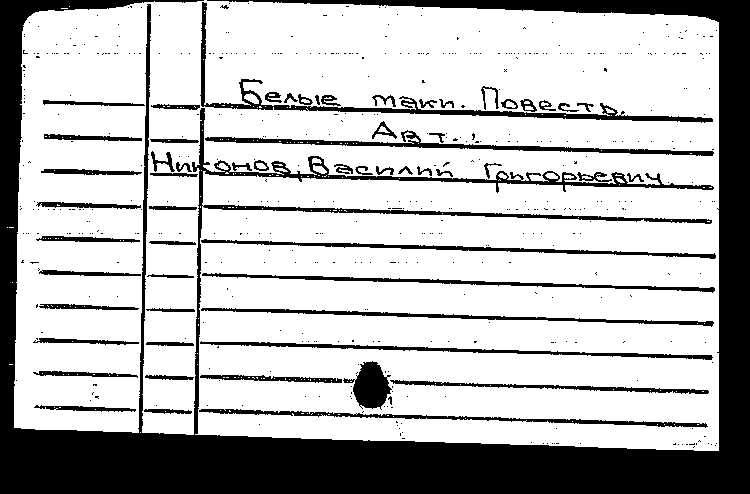 Белые маки. Повесть.
Авт.:
Никонов, Василий Григорьевич.